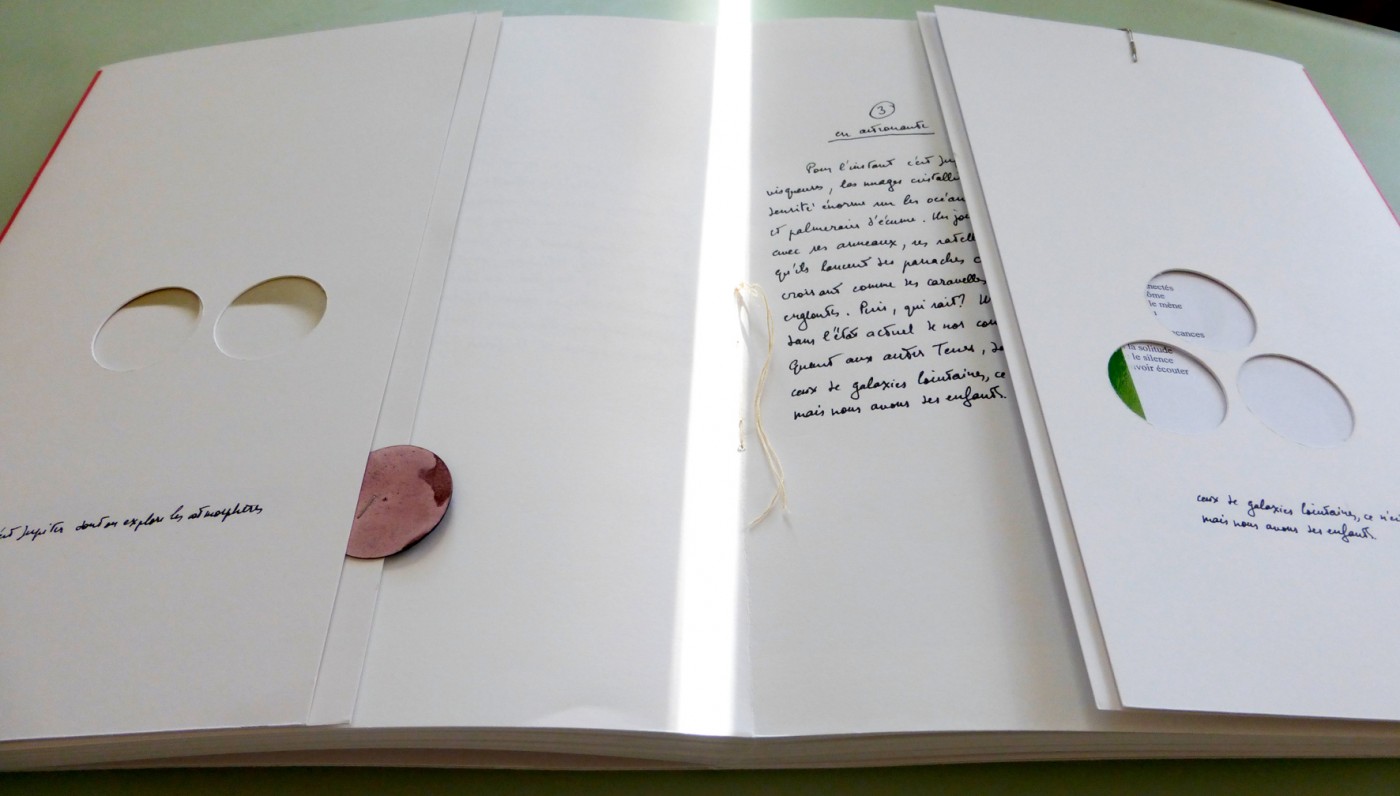 c'est Jupiter dont on explore les atmosphères
3
en astronaute
Pour l'instant c'est Ju
visqueuses, les nuages cristalli
densité énorme sur les océan
et palmeraies d'écume. Un jou
avec ses anneaux, ses satell
qu'ils lancent des panaches
croissant comme des caravelles
englouties. Puis, qui sait?
dans l'état actuel de nos con
Quant aux autres Terres,
ceux de galaxies lointaines, ce
mais nous avons des enfants.
nectés
ôme
le mène
cances
la solitude
le silence
voir écouter
ceux de galaxies lointaines, ce n'est
mais nous avons des enfants.